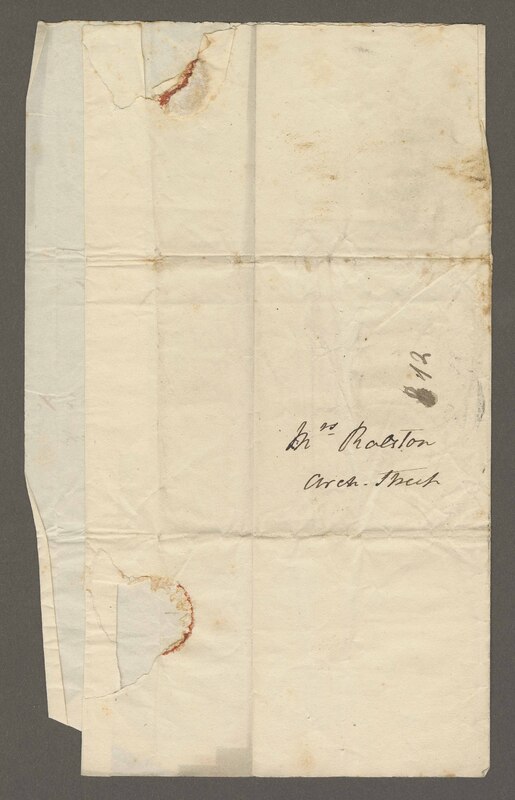 Mrs Ralston
Arch. Street